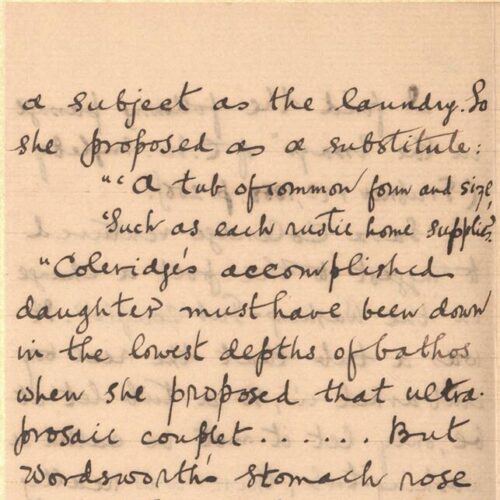 a subject as the laundry. So
she proposed as a substitute:
"'A tub of common form and size,
'Such as each rustic home supplies.'
"Coleridge's accomplished
daughter must have been down
in the lowest depths of bathos
when she proposed that ultra-
prosaic couplet...... But
Wordsworth's stomach rose